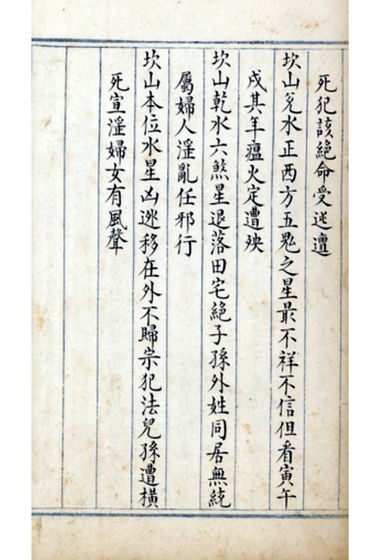 死犯該絕命受迍邅
坎山兌水正西方五鬼之星最不祥不信但看寅午
戌其年瘟火定遭殃
坎山乾水六煞星退落田宅絕子孫外姓同居無統
屬婦人淫亂任邪行
坎山本位水星凶逃移在外不歸宗犯法兒孫遭橫
死宣淫婦女有風聲